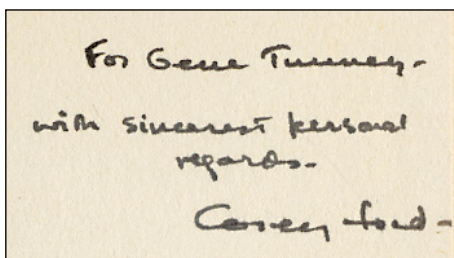 For Gene Tunney -
with sincerest personal
regards -
Corey Ford -